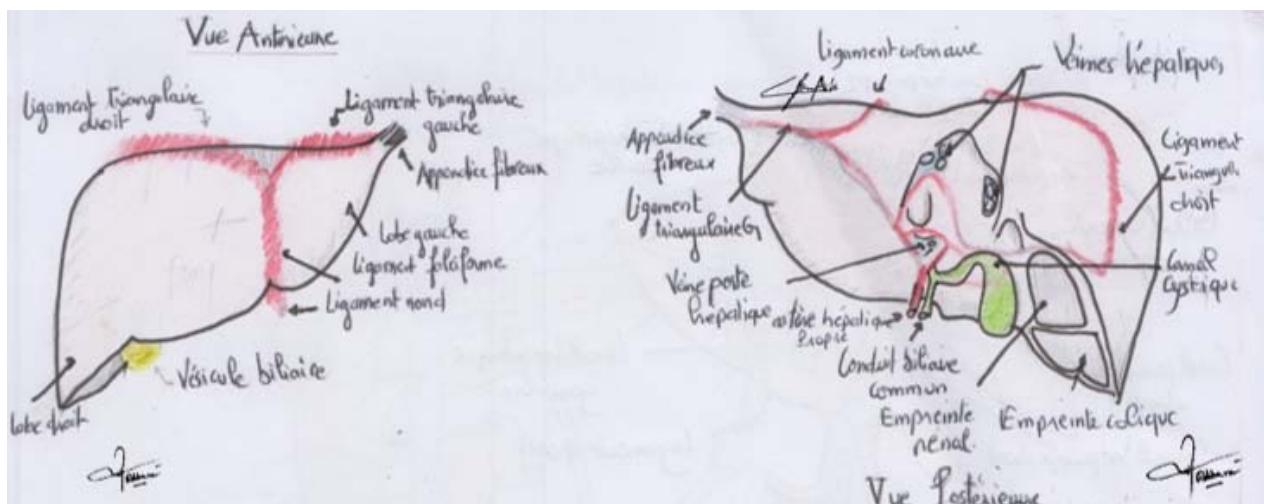 Vue Antérieure
Ligament Triangulaire
droit
Ligament triangulaire
gauche
Appendice fibreux
Lobe gauche
Ligament falciforme
Ligament rond
Vésicule biliaire
Lobe droit
Ligament coronaire
Veines hépatiques
Appendice
fibreux
Ligament
triangulaire G
Ligament
Triangul
droit
Veine porte
hépatique
artère hépatique
propre
Canal
Cystique
Conduit biliaire
commun
Empreinte
rénal
Empreinte colique
Vue Postérieure